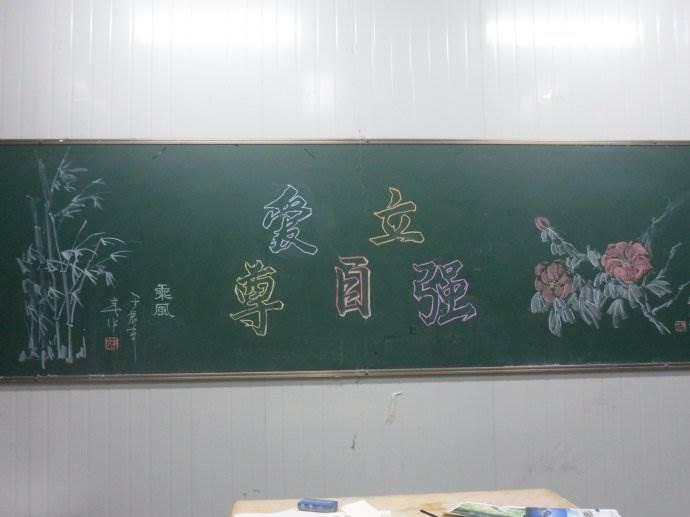 爱 立
尊 自 强
乘风